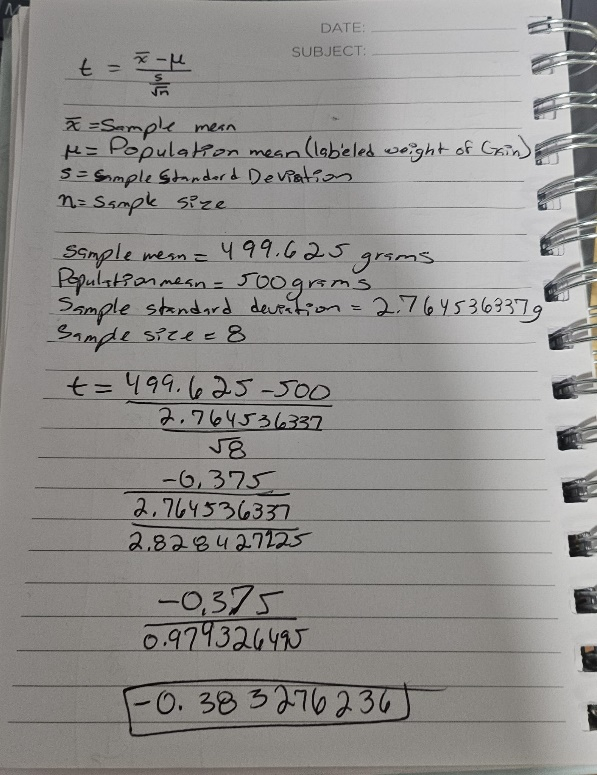 DATE:
SUBJECT:
t = x̄ - μ / s / √n
x̄ = Sample mean
μ = Population mean (labeled weight of Gain)
s = Sample Standard Deviation
n = Sample size
Sample mean = 499.625 grams
Population mean = 500 grams
Sample standard deviation = 2.764536337g
Sample size = 8
t = 499.625 - 500
2.764536337
√8
-0.375
2.764536337
2.828427125
-0.375
0.979326495
-0.383276236